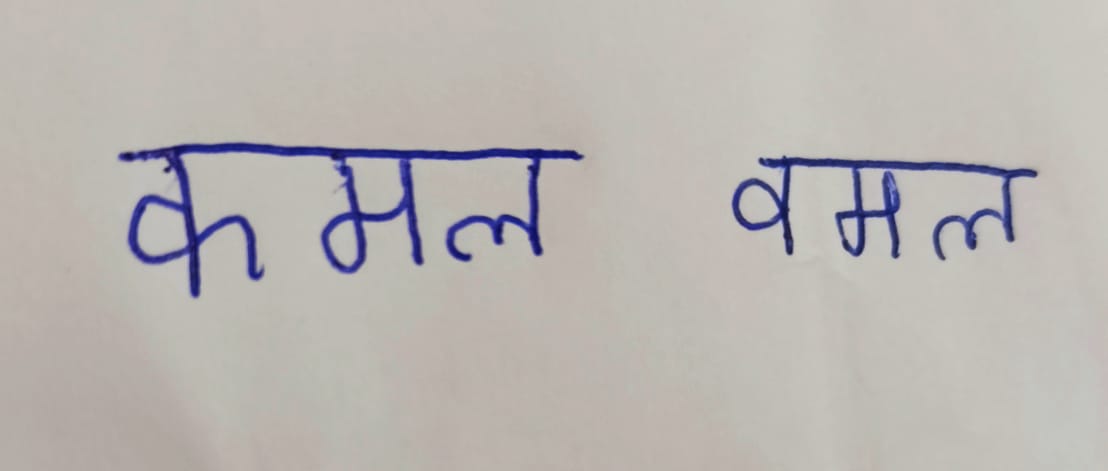 कमल वमल